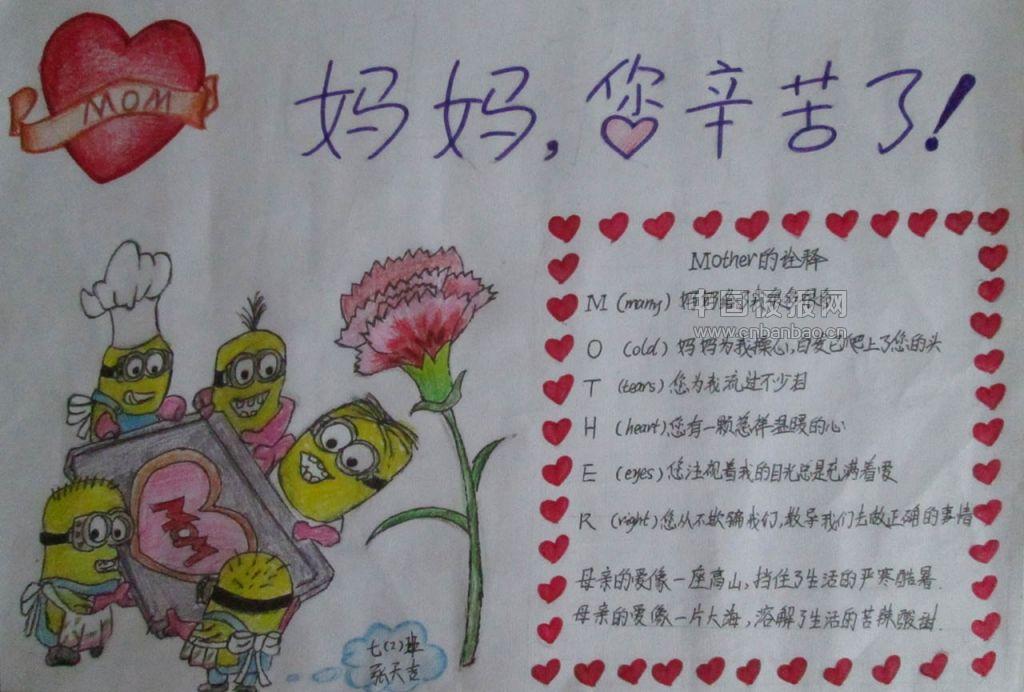 MOM
妈妈,您辛苦了!
Mother的诠释
M (many) 妈妈给了我很多
中国板报网
www.cnbanbao.cn
O (old) 妈妈为我操心,白发已爬上了您的头
T (tears) 您为我流过不少泪
H (heart) 您有一颗慈祥温暖的心
E (eyes) 您注视着我的目光总是充满着爱
R (right) 您从不欺骗我们,教导我们去做正确的事情
母亲的爱像一座高山,挡住了生活的严寒酷暑.
母亲的爱像一片大海,溶解了生活的苦辣酸甜.
MOM
七(2)班
张天吉